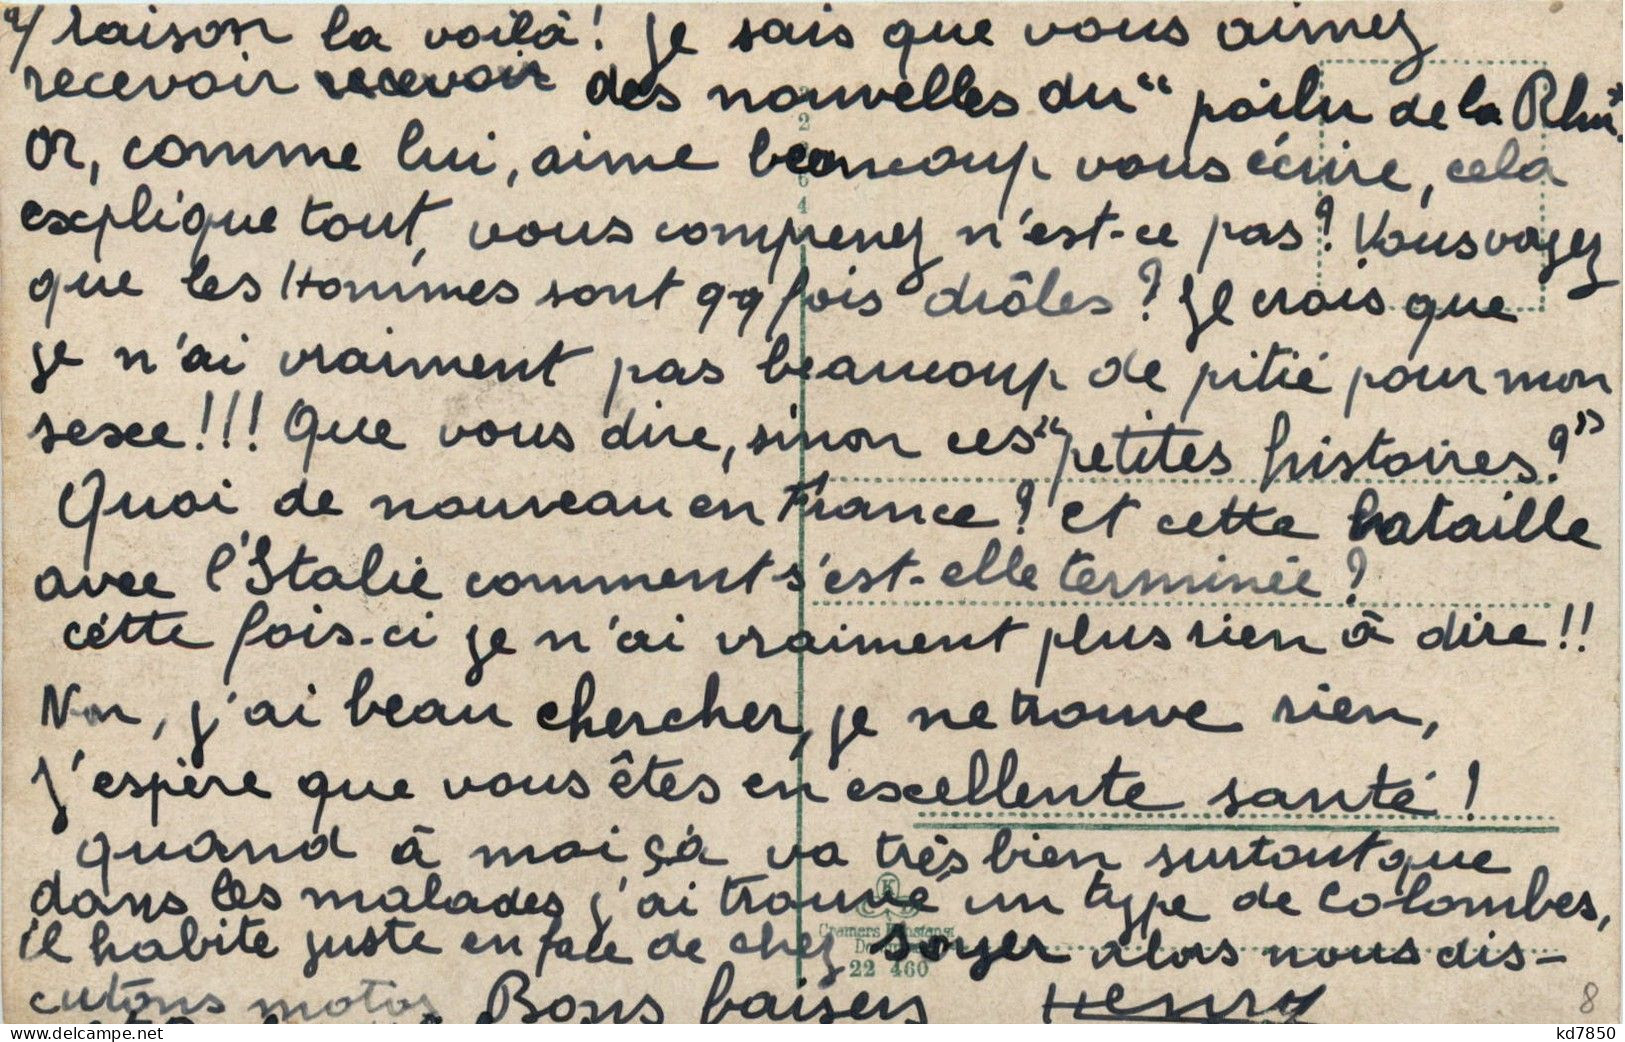 2/ raison la voilà! Je sais que vous aimez
recevoir recevoir des nouvelles du " poilu de la Rhu".
Or, comme lui, aime beaucoup vous écrire, cela
explique tout, vous comprenez n'est-ce pas? Vous voyez
que les Hommes sont qq fois drôles? Je crois que
je n'ai vraiment pas beaucoup de pitié pour mon
sexe!!! Que vous dire, sinon ces "petites histoires?"
Quoi de nouveau en France? et cette bataille
avec l'Italie comment s'est-elle terminée?
cette fois-ci je n'ai vraiment plus rien à dire!!
Non, j'ai beau chercher, je ne trouve rien,
J'espère que vous êtes en excellente santé!
quand à moi çà va très bien surtout que
dans les malades j'ai trouvé un type de Colombes,
il habite juste en face de chez Soyer alors nous dis-
cutons motos Bons baisers Henry
Cramers Kunstanst
22 460
8
kd7850